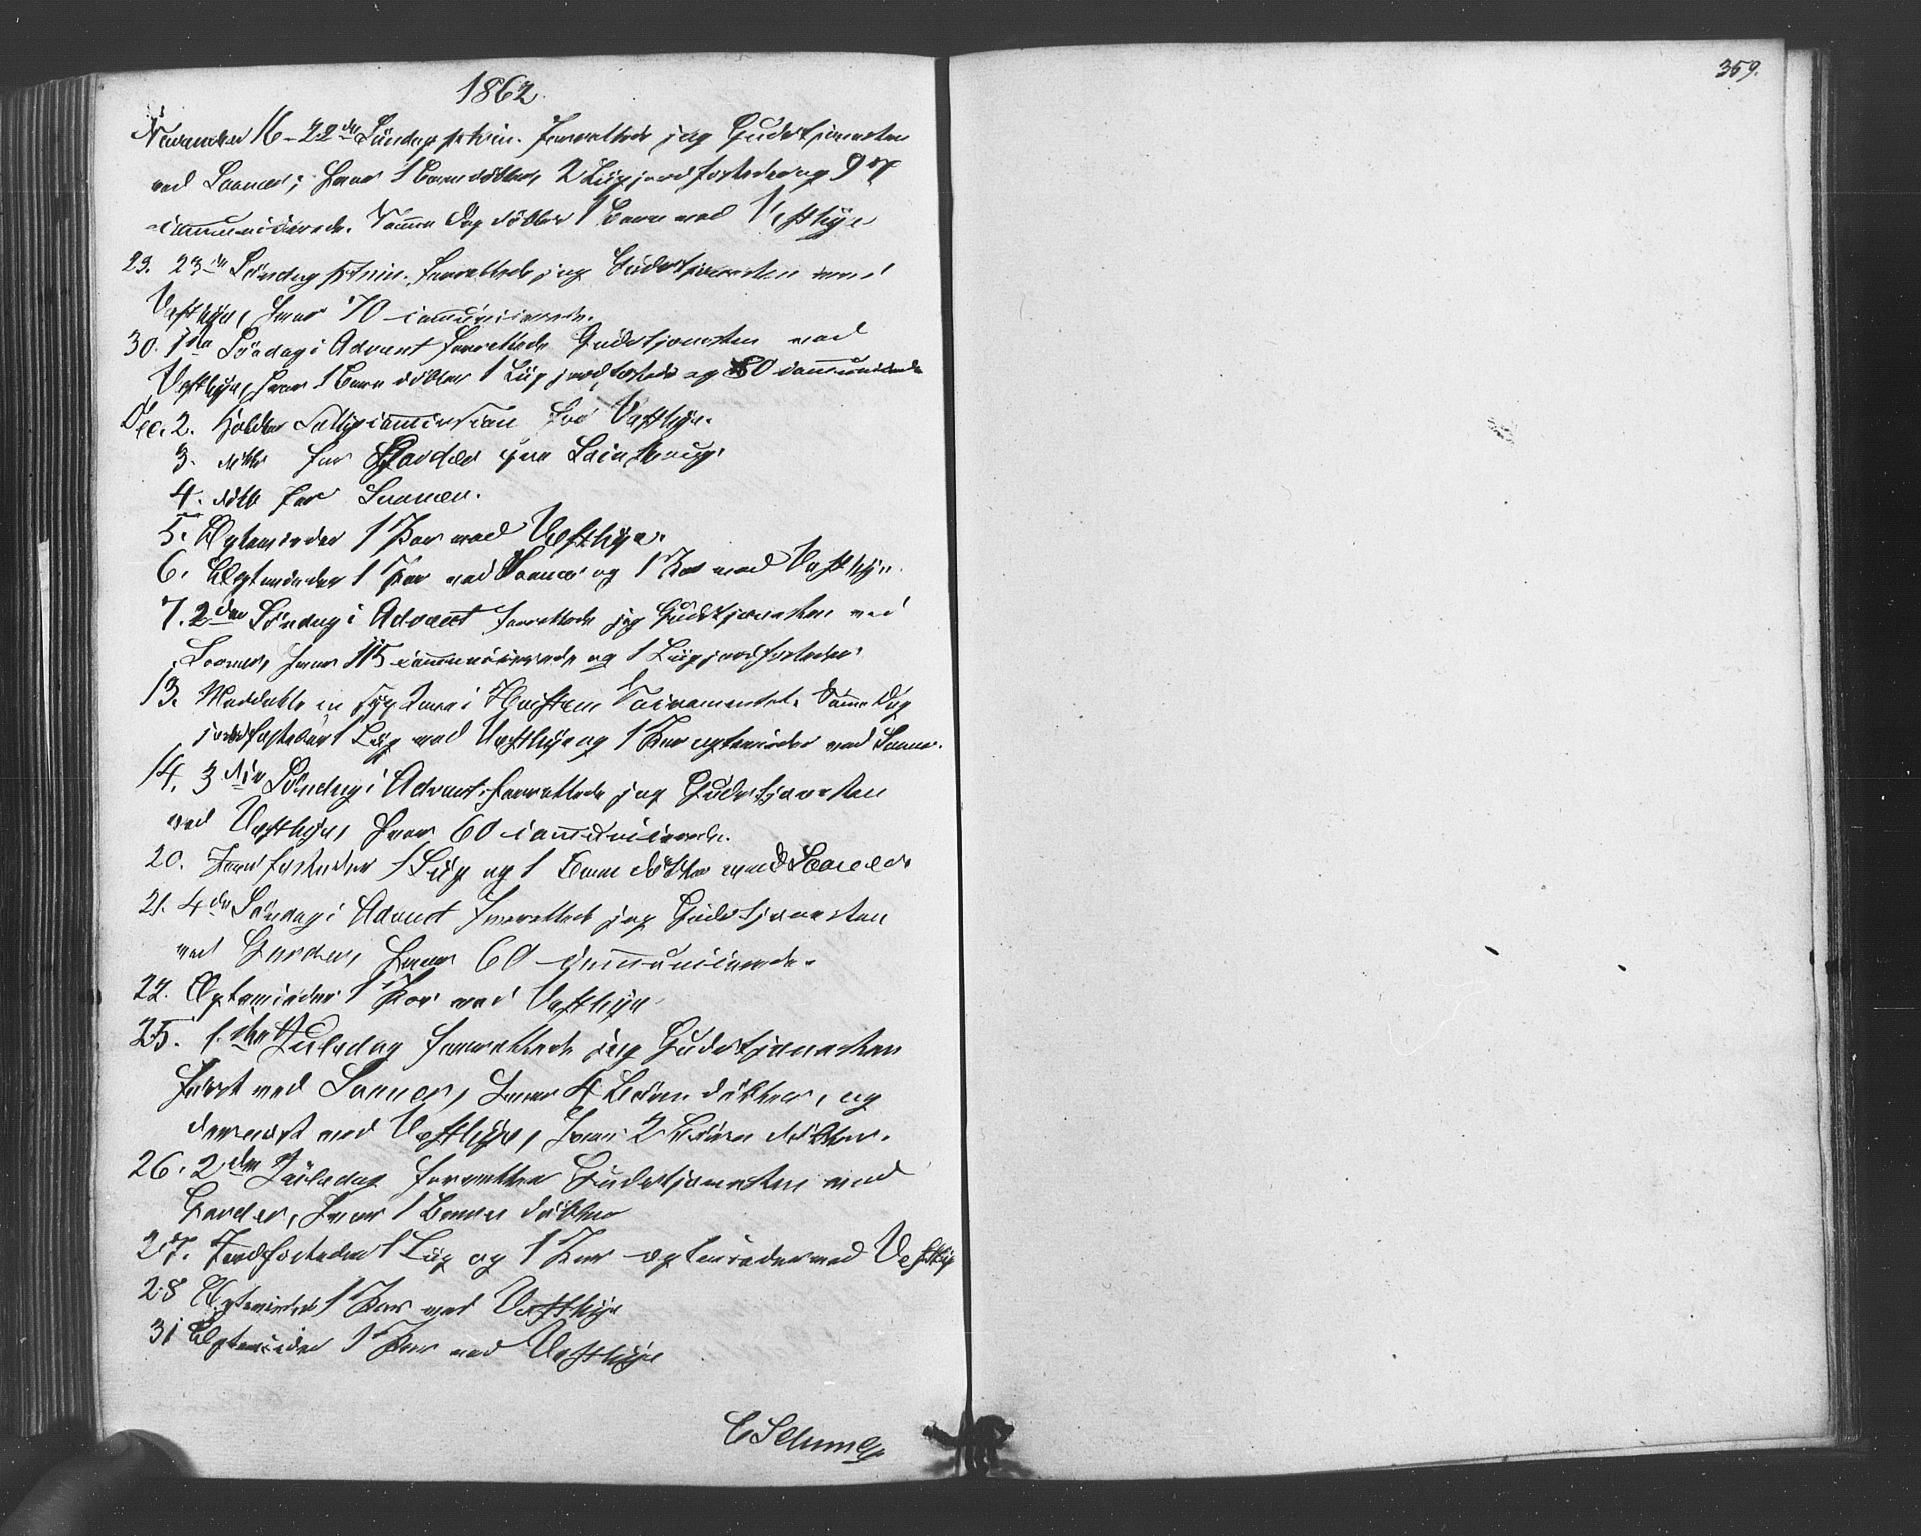 359.
1862.
November 16 - 22de Søndag p. trin. forrettede jeg Gudstjenesten
ved Soner; hvor 1 Barn døbtes, 2 Liig jordfæstedes og 97
communicerede. Samme Dag døbtes 1 Barn ved Vestbye
23. 23de Søndag p. trin. forrettede jeg Gudstjenesten ved
Vestbye, hvor 70 communicerede.
30. 1ste Søndag i Advent forrettede Gudstjenesten ved
Vestbye, hvor 1 Barn døbtes 1 Liig jordfæstedes og 80 communicerede
Dec. 2. Holdtes for Vestbye.
3. ditto for Garder
4. ditto for Soner.
5. Ægtevieder 1 Par ved Vestbye.
6. Ægtevieder 1 Par ved Soner og 1 Par ved Vestbye.
7. 2den Søndag i Advent forrettede jeg Gudstjenesten ved
Soner, hvor 115 communicerede og 1 Liig jordfæstedes.
13. Meddeelte en syg i Sacramentet. Samme Dag
jordfæstedes 1 Liig ved Vestbye og 1 Par ægtevieder ved Soner.
14. 3die Søndag i Advent forrettede jeg Gudstjenesten
ved Vestbye, hvor 60 communicerede.
20. Jordfæstedes 1 Liig og 1 Barn døbtes ved Soner
21. 4de Søndag i Advent forrettede jeg Gudstjenesten
ved Garder, hvor 60 communicerede.
22. Ægtevieder 1 Par ved Vestbye
25. 1ste Juledag forrettede jeg Gudstjenesten
først ved Soner, hvor 4 Børn døbtes, og
dernæst ved Vestbye, hvor 2 Børn døbtes.
26. 2den Juledag forrettes Gudstjenesten ved
Garder, hvor 1 Barn døbtes
27. Jordfæstedes 1 Liig og 1 Par ægtevieder ved Vestbye
28 Ægtevieder 1 Par ved Vestbye
31 Ægtevieder 1 Par ved Vestbye